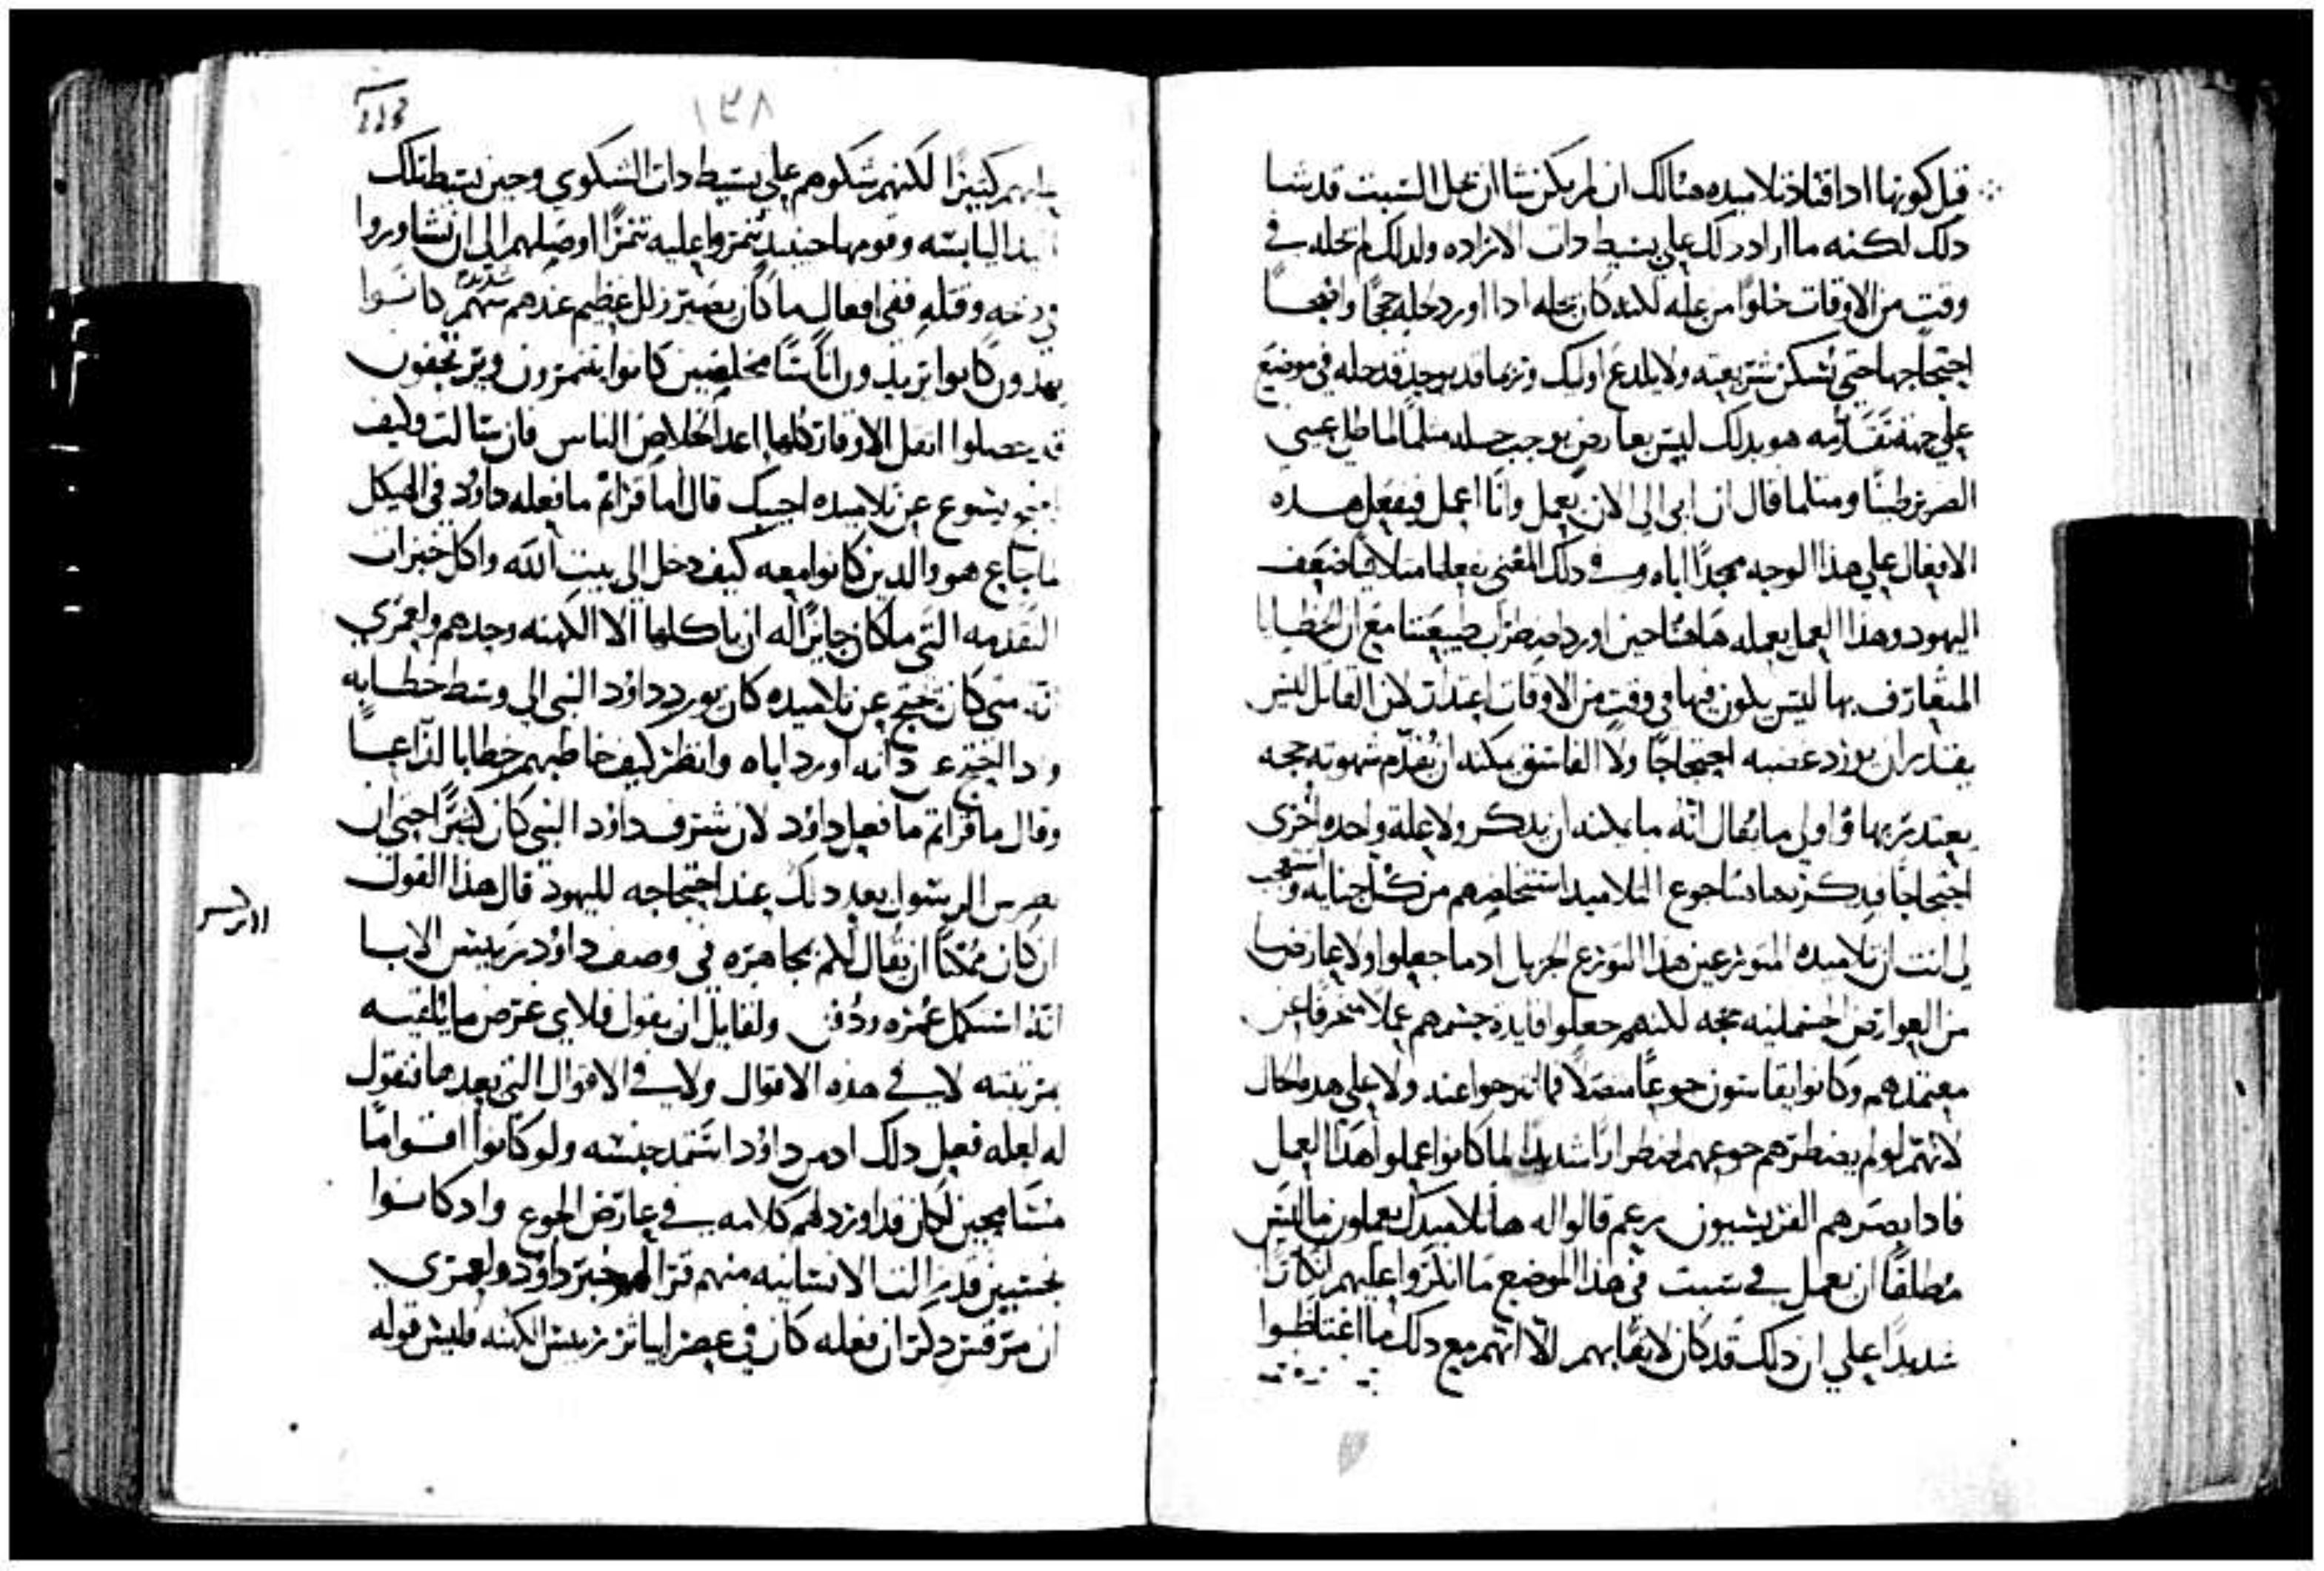 قبل كونها اذا اقتاد تلاميده هنالك ان لم يكن نشا ان تحل السبت قد نشا
دلك لكنه ما اراد دلك علي بسيط دات الاراده ولدلك لم يحله في
وقت من الاوقات خلوًا من عله لكنه كان يحله ادا اورد لحله حججًا واضحًا
احتجاجها حتي تسكن شريعته ولا يلدع اوليك وربما قد يوجد قد حله في موضع
علي جهة تقدمه هو بدلك ليس بعارض يوجب حله مثلما لما طلي عيني
الضرير طينًا ومثلما قال ان ابي الي الان يعمل وانا اعمل فيفعل هده
الافعال علي هذا الوجه ممجدًا اباه وفي دلك المعني يفعلها متلافيًا ضعف
اليهود وهذا العمل يعمله هاهنا حين اورد اضطرار طبيعتنا مع ان الخطايا
المتعارف بها ليس يكون فيها في وقت من الاوقات اعتدار لان القاتل ليس
يقدر ان يورد غضبه احتجاجًا ولا الفاسق يمكنه ان يقدم شهوته حجه
يعتدر بها واولي ما يقال انه ما يمكنه ان يدكر ولا علة واحده اخري
احتجاجًا فدكر هاهنا جوع التلاميد استخلصهم من كل جنايه واستعجب
لي انت ان تلاميده المتورعين هدا التورع الجزيل اد ما جعلوا ولا عارضًا
من العوارض الجسمانيه حجه لكنهم جعلوا فايدة جسمهم عملًا منحرفًا عن
معتمدهم وكانوا يقاسون جوعًا متصلًا فما نزحوا عنه ولا علي هده الحال
لانهم لو لم يضطرهم جوعهم اضطرارًا شديدًا لما كانوا عملوا هذا العمل
فادا بصرهم الفريسيون برعم قالوا له ها تلاميدك يعملون ما ليس
مطلقًا ان يعمل في سبت في هذا الموضع ما انكروا عليهم انكارًا
شديدًا علي ان دلك قد كان لايقًا بهم الا انهم مع دلك ما اغتاظوا
١٣٨
عليهم كثيرًا لكنهم شكوهم علي بسيط دات الشكوي وحين بسط تلك
اليد اليابسه وقومها حينيد تنمروا عليه تنمرًا اوصلهم الي ان تشاوروا
في دخه وقتله ففي افعال ما كان يصير زلل عظيم عندهم شديد كانوا
يهدون كانوا يريدون اناسًا مخلصين كانوا يتنمرون ويرتجفون
قد يحصلوا افضل الاوقات كلها اعدا لخلاص الناس فان سالت وكيف
احتج يسوع عن تلاميده اجيبك قال اما قراتم ما فعله داود في الهيكل
لما جاع هو والدين كانوا معه كيف دخل الي بيت الله واكل خبزات
التقدمه التي ما كان جايزًا له ان ياكلها الا الكهنه وحدهم ولعمري
انه متي كان يحتج عن تلاميده كان يورد داود النبي الي وسط خطابه
وانظر كيف خاطبهم خطابًا لداعًا
وقال ما قراتم ما فعل داود لان شرف داود النبي كان كبيرًا حتي ان
بطرس الرسول بعد دلك عند احتجاجه لليهود قال هذا القول
ان كان ممكنًا ان يقال لكم بمجاهره في وصف داود رييس الابا
انه استكمل عمره ودفن ولقايل ان يقول فلاي غرض ما يلقبه
برتبته لا في هده الاقوال ولا في الاقوال التي بعدها فنقول
له لعله فعل دلك اد من داود استمد جنسه ولو كانوا اقوامًا
متسامحين لكان قد اورد لهم كلامه في عارض الجوع واد كانوا
نجسين قد زالت الانسانيه منهم قرا لهم خبر داود ولعمري
ان مرقس دكر ان فعله كان في عصر ابياثر رييس الكهنه فليس قوله